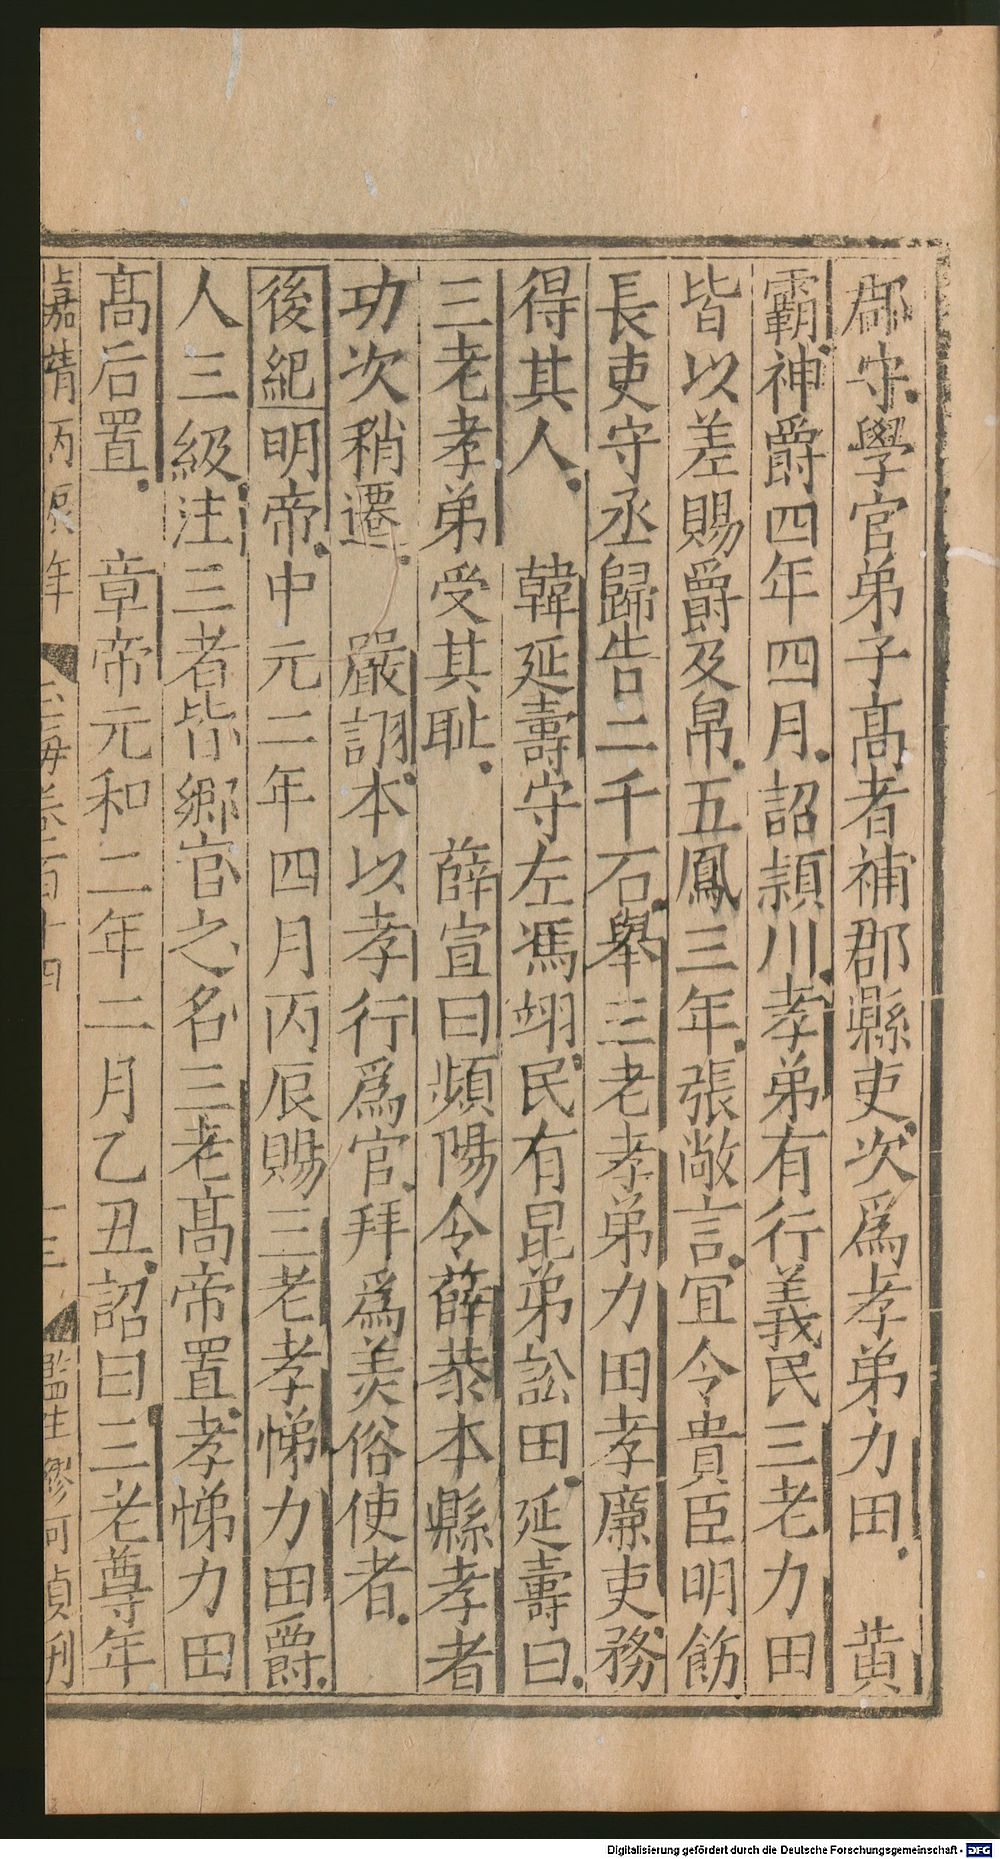 郡守學官弟子髙者補郡縣吏次爲孝弟力田　黄
霸神爵四年四月詔潁川孝弟有行義民三老力田
皆以差賜爵及帛五鳳三年張敞言宜令貴臣明飭
長吏守丞歸告二千石舉三老孝弟力田孝廉吏務
得其人　韓延壽守左馮翊民有昆弟訟田延壽曰
三老孝弟受其恥　薛宣曰頻陽令薛恭本縣孝者
功次稍遷　嚴詡本以孝行爲官拜爲美俗使者
後紀明帝中元二年四月丙辰賜三老孝悌力田爵
人三級注三者皆鄉官之名三老髙帝置孝悌力田
髙后置　章帝元和二年二月乙丑詔曰三老尊年
嘉靖丙辰年　玉海卷一百十四　十三　監生繆可貞刊
Digitalisierung gefördert durch die Deutsche Forschungsgemeinschaft - DFG